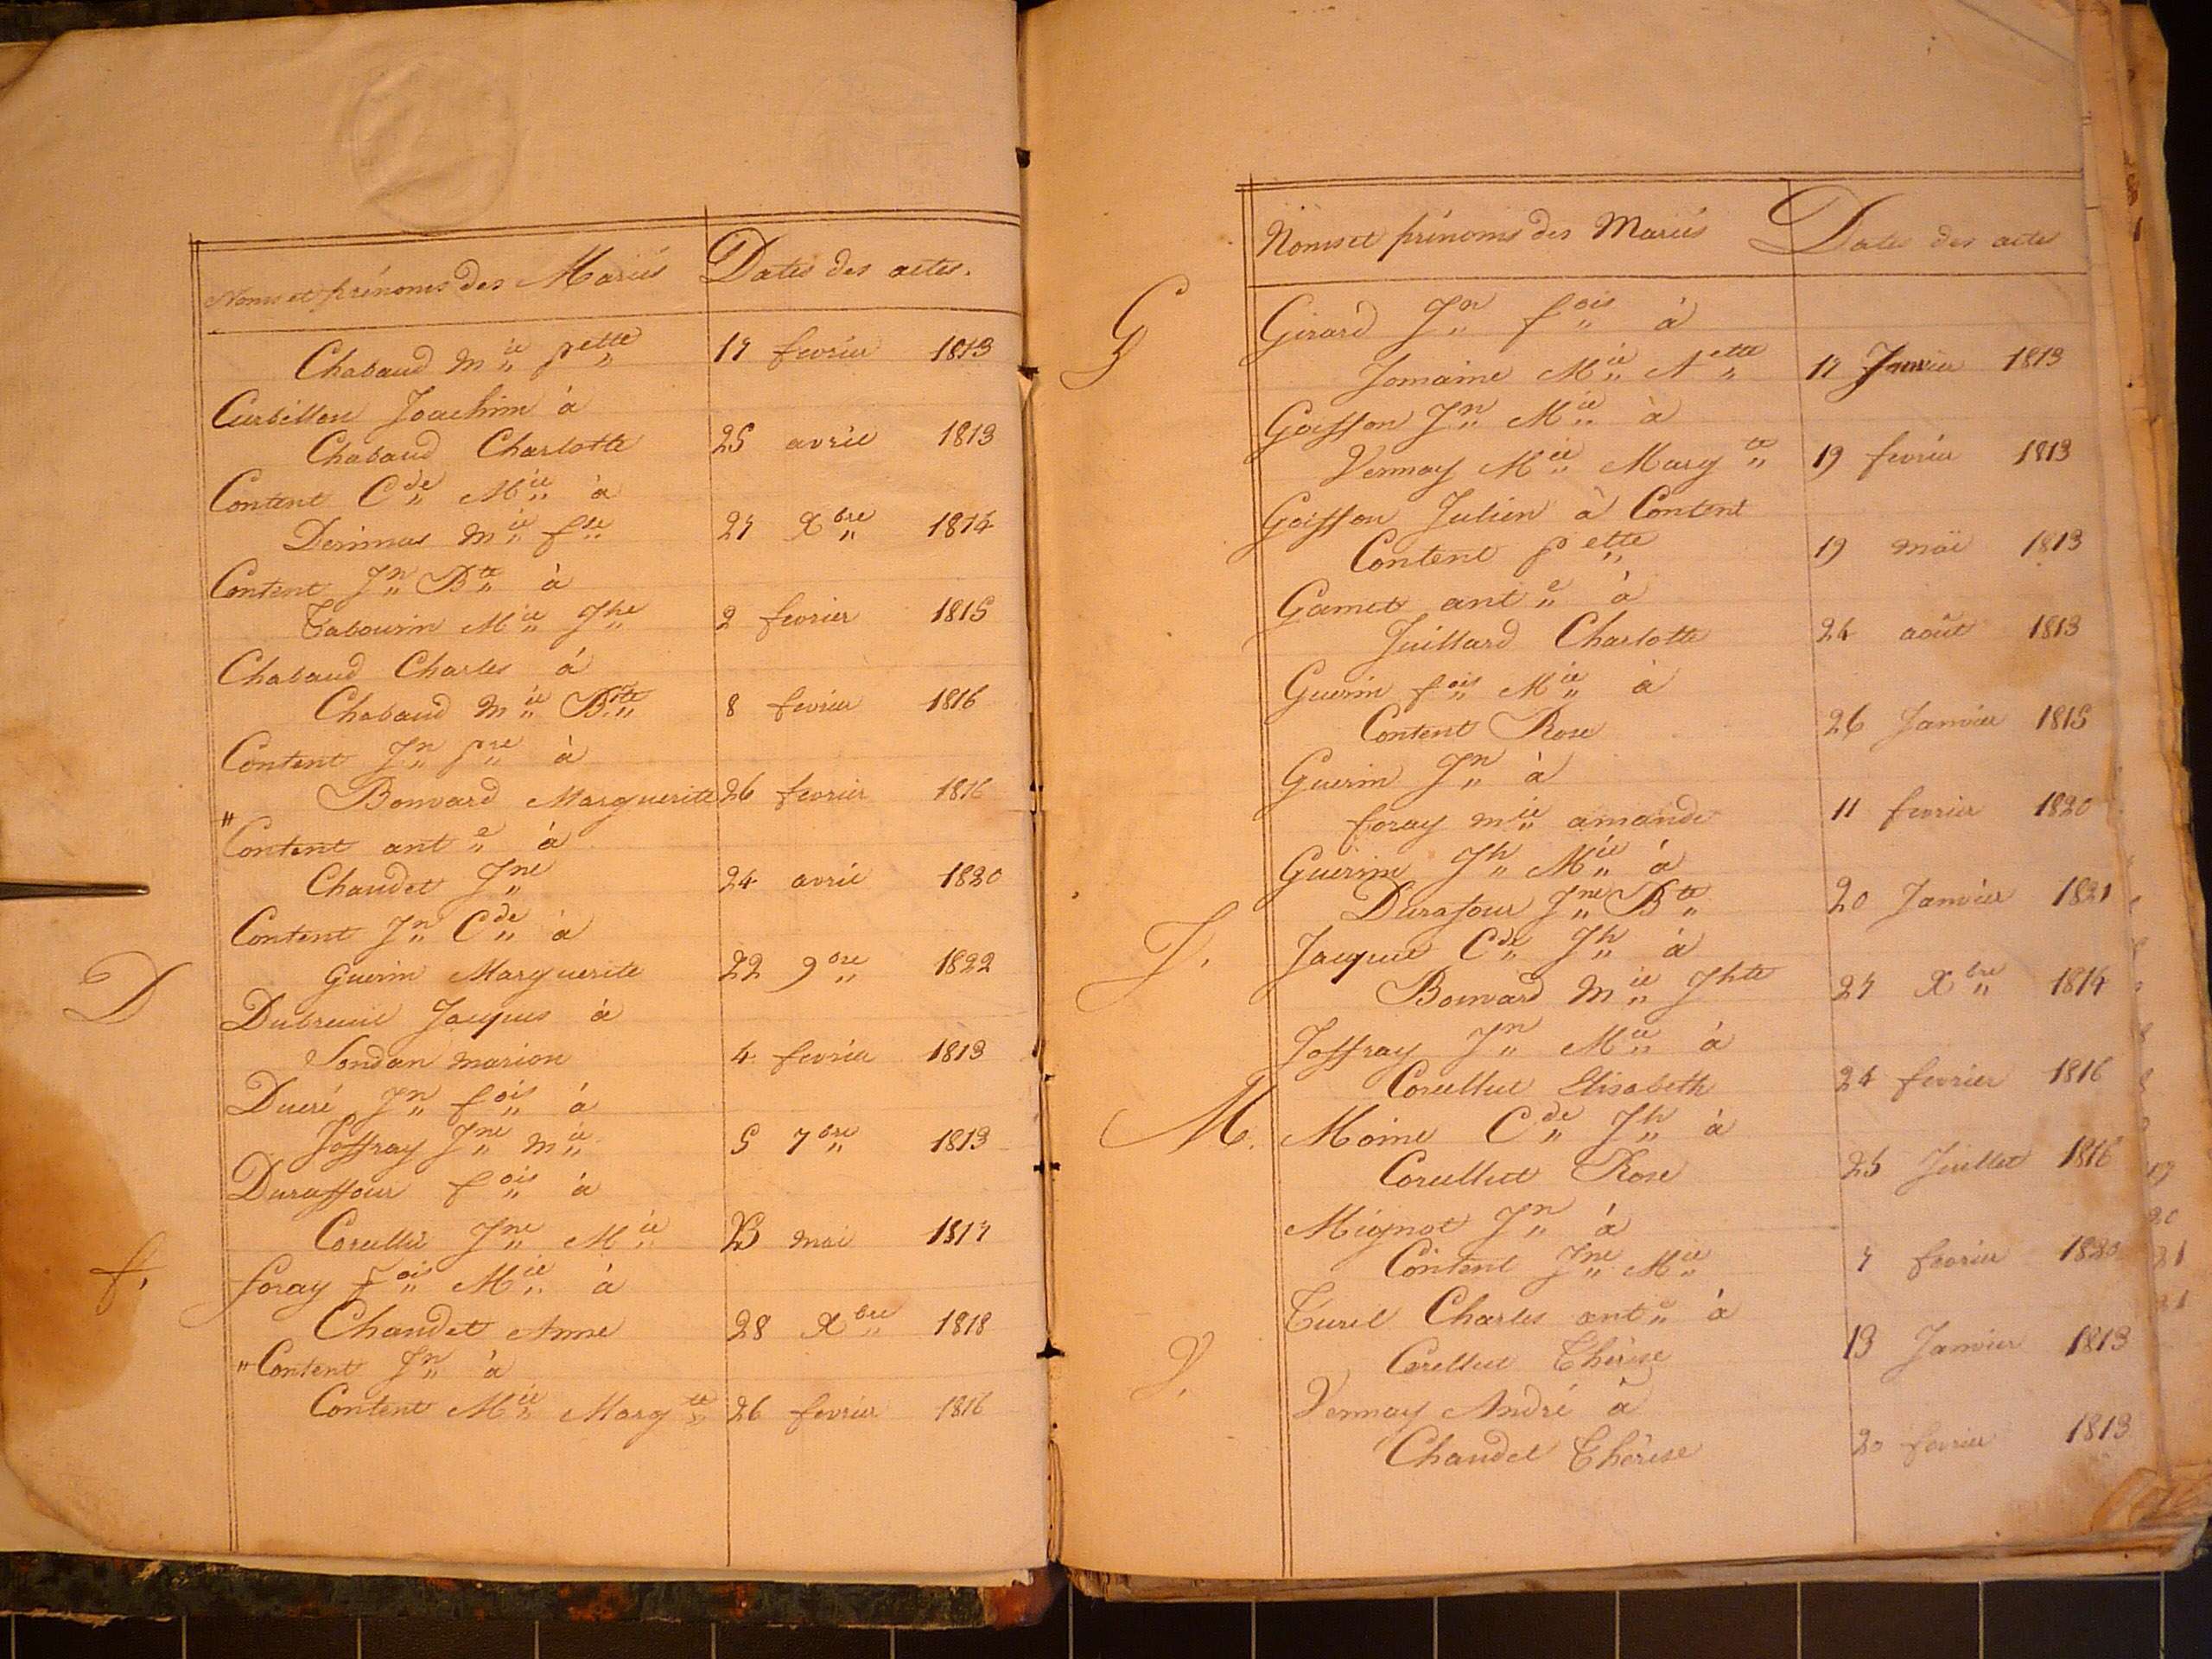 Noms et prénoms des Mariés Dates des actes.
Chabaud mie pette 17 fevrier 1813
Curbillon Joachim à
Chabaud Charlotte 25 avril 1813
Content Cde Mie à
mie fse 27 Xbre 1814
Content Jn Bte à
Tabourin Mie Jhe 2 fevrier 1815
Chabaud Charles à
Chabaud mie Btte 8 fevrier 1816
Content Jn pre à
Bonvard Marguerite 26 fevrier 1816
" Content ante à
Chaudet Jne 24 avril 1820
Content Jn Cde à
Guerin Marguerite 22 9bre 1822
D
Dubreuil Jacques à
Sondan marion 4 fevrier 1813
Dueré Jn fois à
Joffray Jne mie 5 7bre 1813
Duraffour fois à
Jne Mie 23 mai 1817
f.
foray fois Mie à
Chaudet Anne 28 Xbre 1818
" Content Jn à
Content Mie Margte 26 fevrier 1816
Noms et prénoms des Mariés Dates des actes
G
Girard Jn fois à
Jomaine Mie Aette 17 Janvier 1813
Goiffon Jn Mie à
Vennay Mie Margte 19 fevrier 1813
Goiffon Julien à Content
Content pette 19 mai 1813
Gamet ante à
Juillard Charlotte 24 août 1813
Guerin fois Mie à
Content Rose 26 Janvier 1815
Guerin Jn à
foray mie amande 11 fevrier 1820
Guerin Jh Mie à
Durafour Jne Bte 20 Janvier 1821
J.
Jacquie Cde Jh à
Bonvard mie Jhte 27 Xbre 1814
Joffray Jn Mie à
Corellut Elisabeth 24 fevrier 1816
M.
Moine Cde Jh à
Corellut Rose 25 Juillet 1816
Mignot Jn à
Content Jne Mie 7 fevrier 1820
Turel Charles ante à
Corellut Thérèse 13 Janvier 1813
V.
Vennay André à
Chaudet Thérèse 20 fevrier 1813